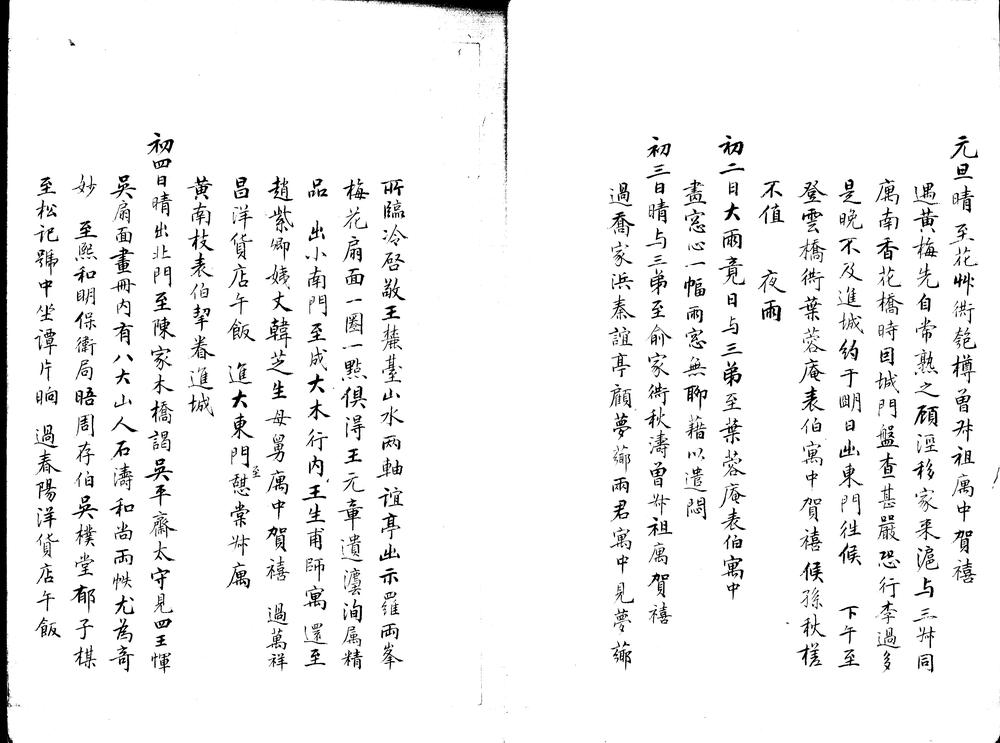 元旦晴至花艸衖匏樽曾叔祖寓中賀禧
遇黃梅先自常熟之顧涇移家來滬与三叔同
寓南香花橋時因城門盤查甚嚴恐行李過多
是晚不及進城約于明日出東門往候 下午至
登雲橋衖葉蓉庵表伯寓中賀禧候孫秋槎
不值 夜雨
初二日大雨竟日与三弟至葉蓉庵表伯寓中
畫窓心一幅雨窓無聊藉以遣悶
初三日晴与三弟至俞家衖秋濤曾叔祖寓賀禧
過喬家浜秦誼亭顧夢薌兩君寓中見夢薌
所臨冷啓敬王麓臺山水兩軸誼亭出示羅兩峯
梅花扇面一圈一點俱得王元章遺灋洵属精
品 出小南門至成大木行内王生甫師寓還至
趙紫卿姨丈韓芝生母舅寓中賀禧 過萬祥
昌洋貨店午飯 進大東門至憇棠叔寓
黃南枝表伯挈眷進城
初四日晴出北門至陳家木橋謁吳平齋太守見四王惲
吳扇面畫冊内有八大山人石濤和尚兩帙尤為奇
妙 至熙和明保衛局晤周存伯吳樸堂郁子楳
至松記號中坐譚片晌 過春陽洋貨店午飯